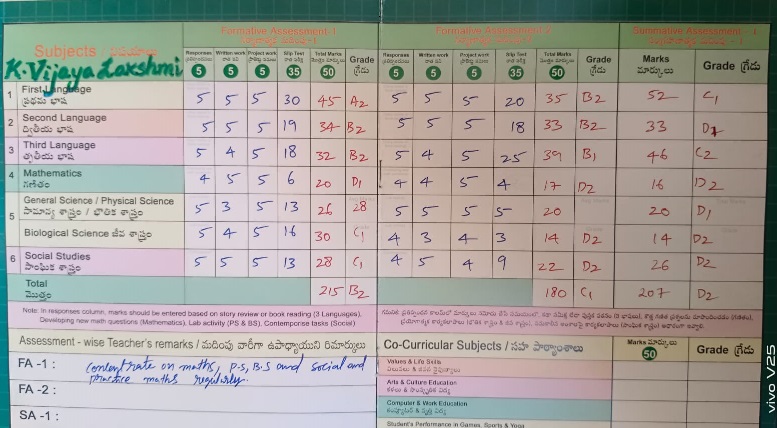 Formative Assessment-1 Formative Assessment-2 Summative Assessment - 1
Subjects
Responses Written work Project work Slip Test Total Marks Grade Responses Written work Project work Slip Test Total Marks Grade Marks Grade గ్రేడు
గ్రేడు గ్రేడు మార్కులు
5 5 5 35 50 5 5 5 35 50
K. Vijaya Lakshmi
1 First Language 5 5 5 30 45 A2 5 5 5 20 35 B2 52 C1
ప్రథమ భాష
2 Second Language 5 5 5 19 34 B2 5 5 5 18 33 B2 33 D2
ద్వితీయ భాష
3 Third Language 5 4 5 18 32 B2 5 4 5 25 39 B1 46 C2
తృతీయ భాష
4 Mathematics 4 5 5 6 20 D1 4 4 5 4 17 D2 16 D2
గణితం
General Science / Physical Science 5 3 5 13 26 28 5 5 5 5 20 20 D1
5 సామాన్య శాస్త్రం / భౌతిక శాస్త్రం
Biological Science జీవ శాస్త్రం 5 4 5 16 30 C1 4 3 4 3 14 D2 14 D2
6 Social Studies 5 5 5 13 28 C1 4 5 4 9 22 D2 26 D2
సాంఘిక శాస్త్రం
Total 215 B2 180 C1 207 D2
మొత్తం
Note: In responses column, marks should be entered based on story review or book reading (3 Languages),
Developing new math questions (Mathematics), Lab activity (PS & BS), Contemporise tasks (Social)
Assessment - wise Teacher's remarks / మదింపు వారీగా ఉపాధ్యాయుని రిమార్కులు
Co-Curricular Subjects / సహ పాఠ్యాంశాలు
Marks మార్కులు Grade గ్రేడు
50
FA -1 : concentrate on maths, P.S, B.S and social and
practice maths regularly.
FA -2 :
SA -1 :
Values & Life Skills
Arts & Culture Education
Computer & Work Education
Student's Performance in Games, Sports & Yoga
vivo V25